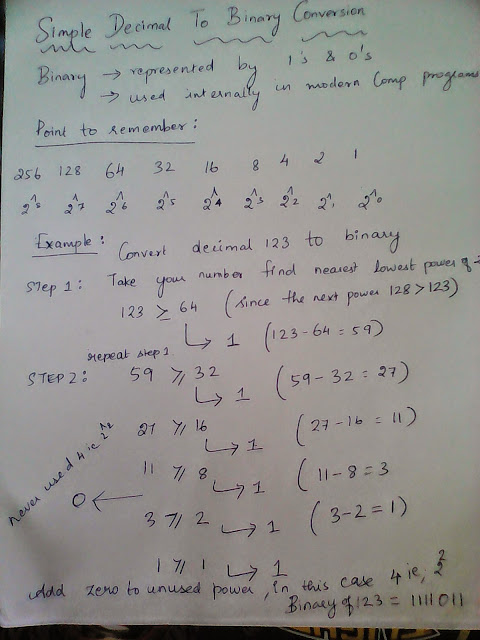 Simple Decimal To Binary Conversion
Binary → represented by 1's & 0's
→ used internally in modern Comp programs
Point to remember:
256 128 64 32 16 8 4 2 1
2^8 2^7 2^6 2^5 2^4 2^3 2^2 2^1 2^0
Example: Convert decimal 123 to binary
Step 1: Take your number find nearest lowest power of 2
123 ≥ 64 (since the next power 128 > 123)
↳ 1 (123-64 = 59)
repeat step 1
STEP 2: 59 ≥ 32 (59-32 = 27)
↳ 1
27 ≥ 16 (27-16 = 11)
↳ 1
11 ≥ 8 (11-8 = 3
↳ 1
never used 4 ie 2^2
0 ←
3 ≥ 2 (3-2 = 1)
↳ 1
1 ≥ 1 ↳ 1
Add zero to unused power, in this case 4 ie, 2^2
Binary of 123 = 1111011